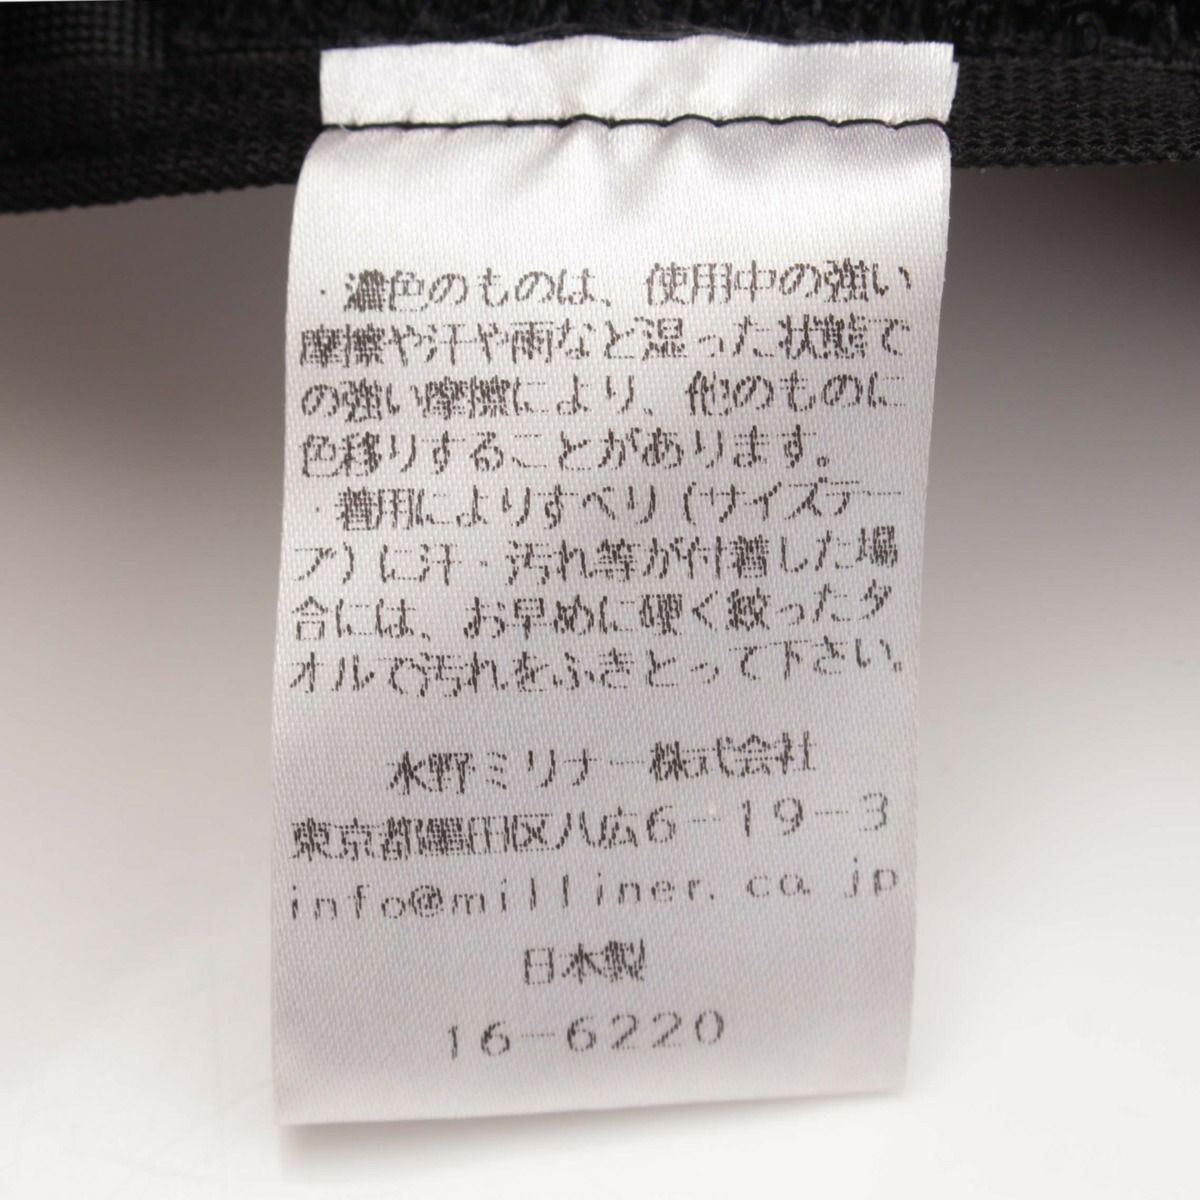 ・濃色のものは、使用中の強い
摩擦や汗や雨など湿った状態で
の強い摩擦により、他のものに
色移りすることがあります。
・着用によりすべり(サイズテー
プ)に汗・汚れ等が付着した場
合には、お早めに硬く絞ったタ
オルで汚れをふきとって下さい。
水野ミリナー株式会社
東京都墨田区八広6-19-3
info@milliner.co.jp
日本製
16-6220